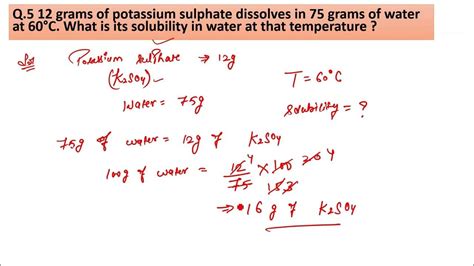 Q.5 12 grams of potassium sulphate dissolves in 75 grams of water
at 60°C. What is its solubility in water at that temperature ?
Sol Potassium sulphate → 12g
(K2SO4)
T = 60°C
Water = 75g
Solubility = ?
75g of water = 12g of K2SO4
100g of water = 12 4 × 100 20 4
75 15 3
⇒ 16 g of K2SO4